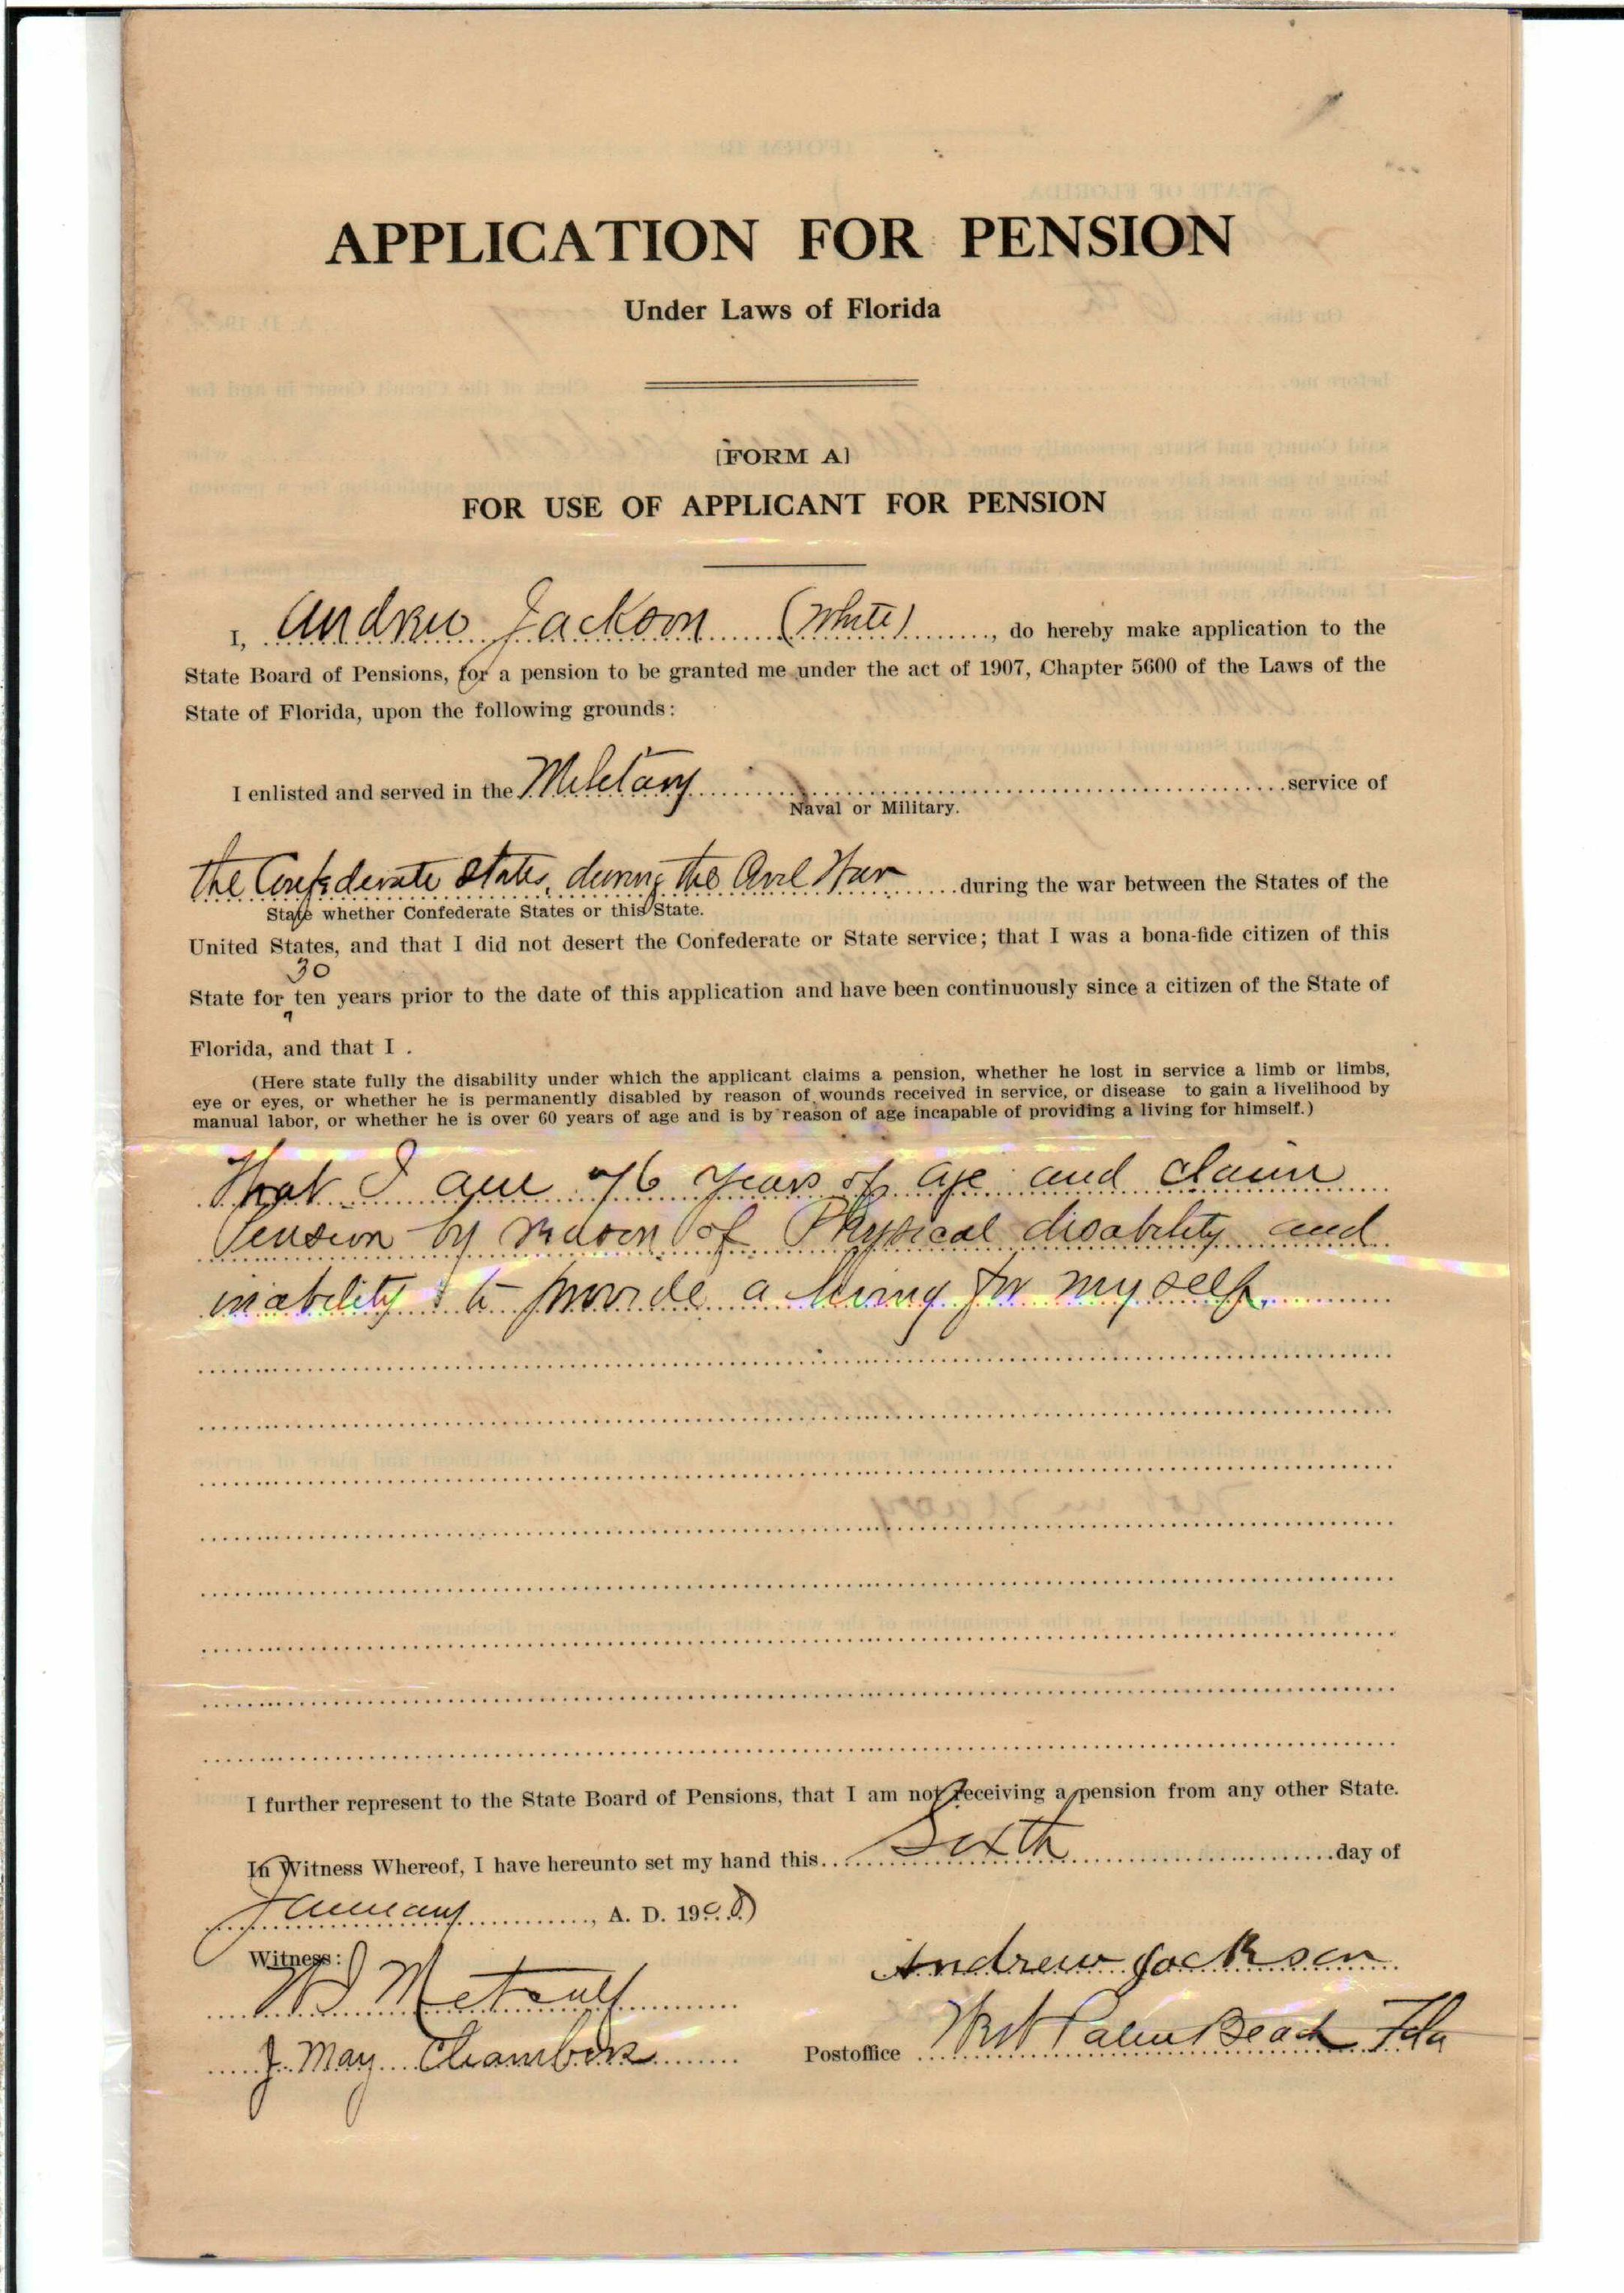 APPLICATION FOR PENSION
Under Laws of Florida
[FORM A]
FOR USE OF APPLICANT FOR PENSION
I, Andrew Jackson (White), do hereby make application to the
State Board of Pensions, for a pension to be granted me under the act of 1907, Chapter 5600 of the Laws of the
State of Florida, upon the following grounds:
I enlisted and served in the Military service of
Naval or Military.
the Confederate States, during the Civil War during the war between the States of the
State whether Confederate States or this State.
United States, and that I did not desert the Confederate or State service; that I was a bona-fide citizen of this
30
State for ten years prior to the date of this application and have been continuously since a citizen of the State of
Florida, and that I .
(Here state fully the disability under which the applicant claims a pension, whether he lost in service a limb or limbs,
eye or eyes, or whether he is permanently disabled by reason of wounds received in service, or disease to gain a livelihood by
manual labor, or whether he is over 60 years of age and is by reason of age incapable of providing a living for himself.)
That I am 76 years of age and claim
Pension by reason of Physical disability and
inability to provide a living for myself.
I further represent to the State Board of Pensions, that I am not receiving a pension from any other State.
In Witness Whereof, I have hereunto set my hand this Sixth day of
January, A. D. 1908
Witness:
Andrew Jackson
Metcalf
J. May Chambers
Postoffice West Palm Beach Fla